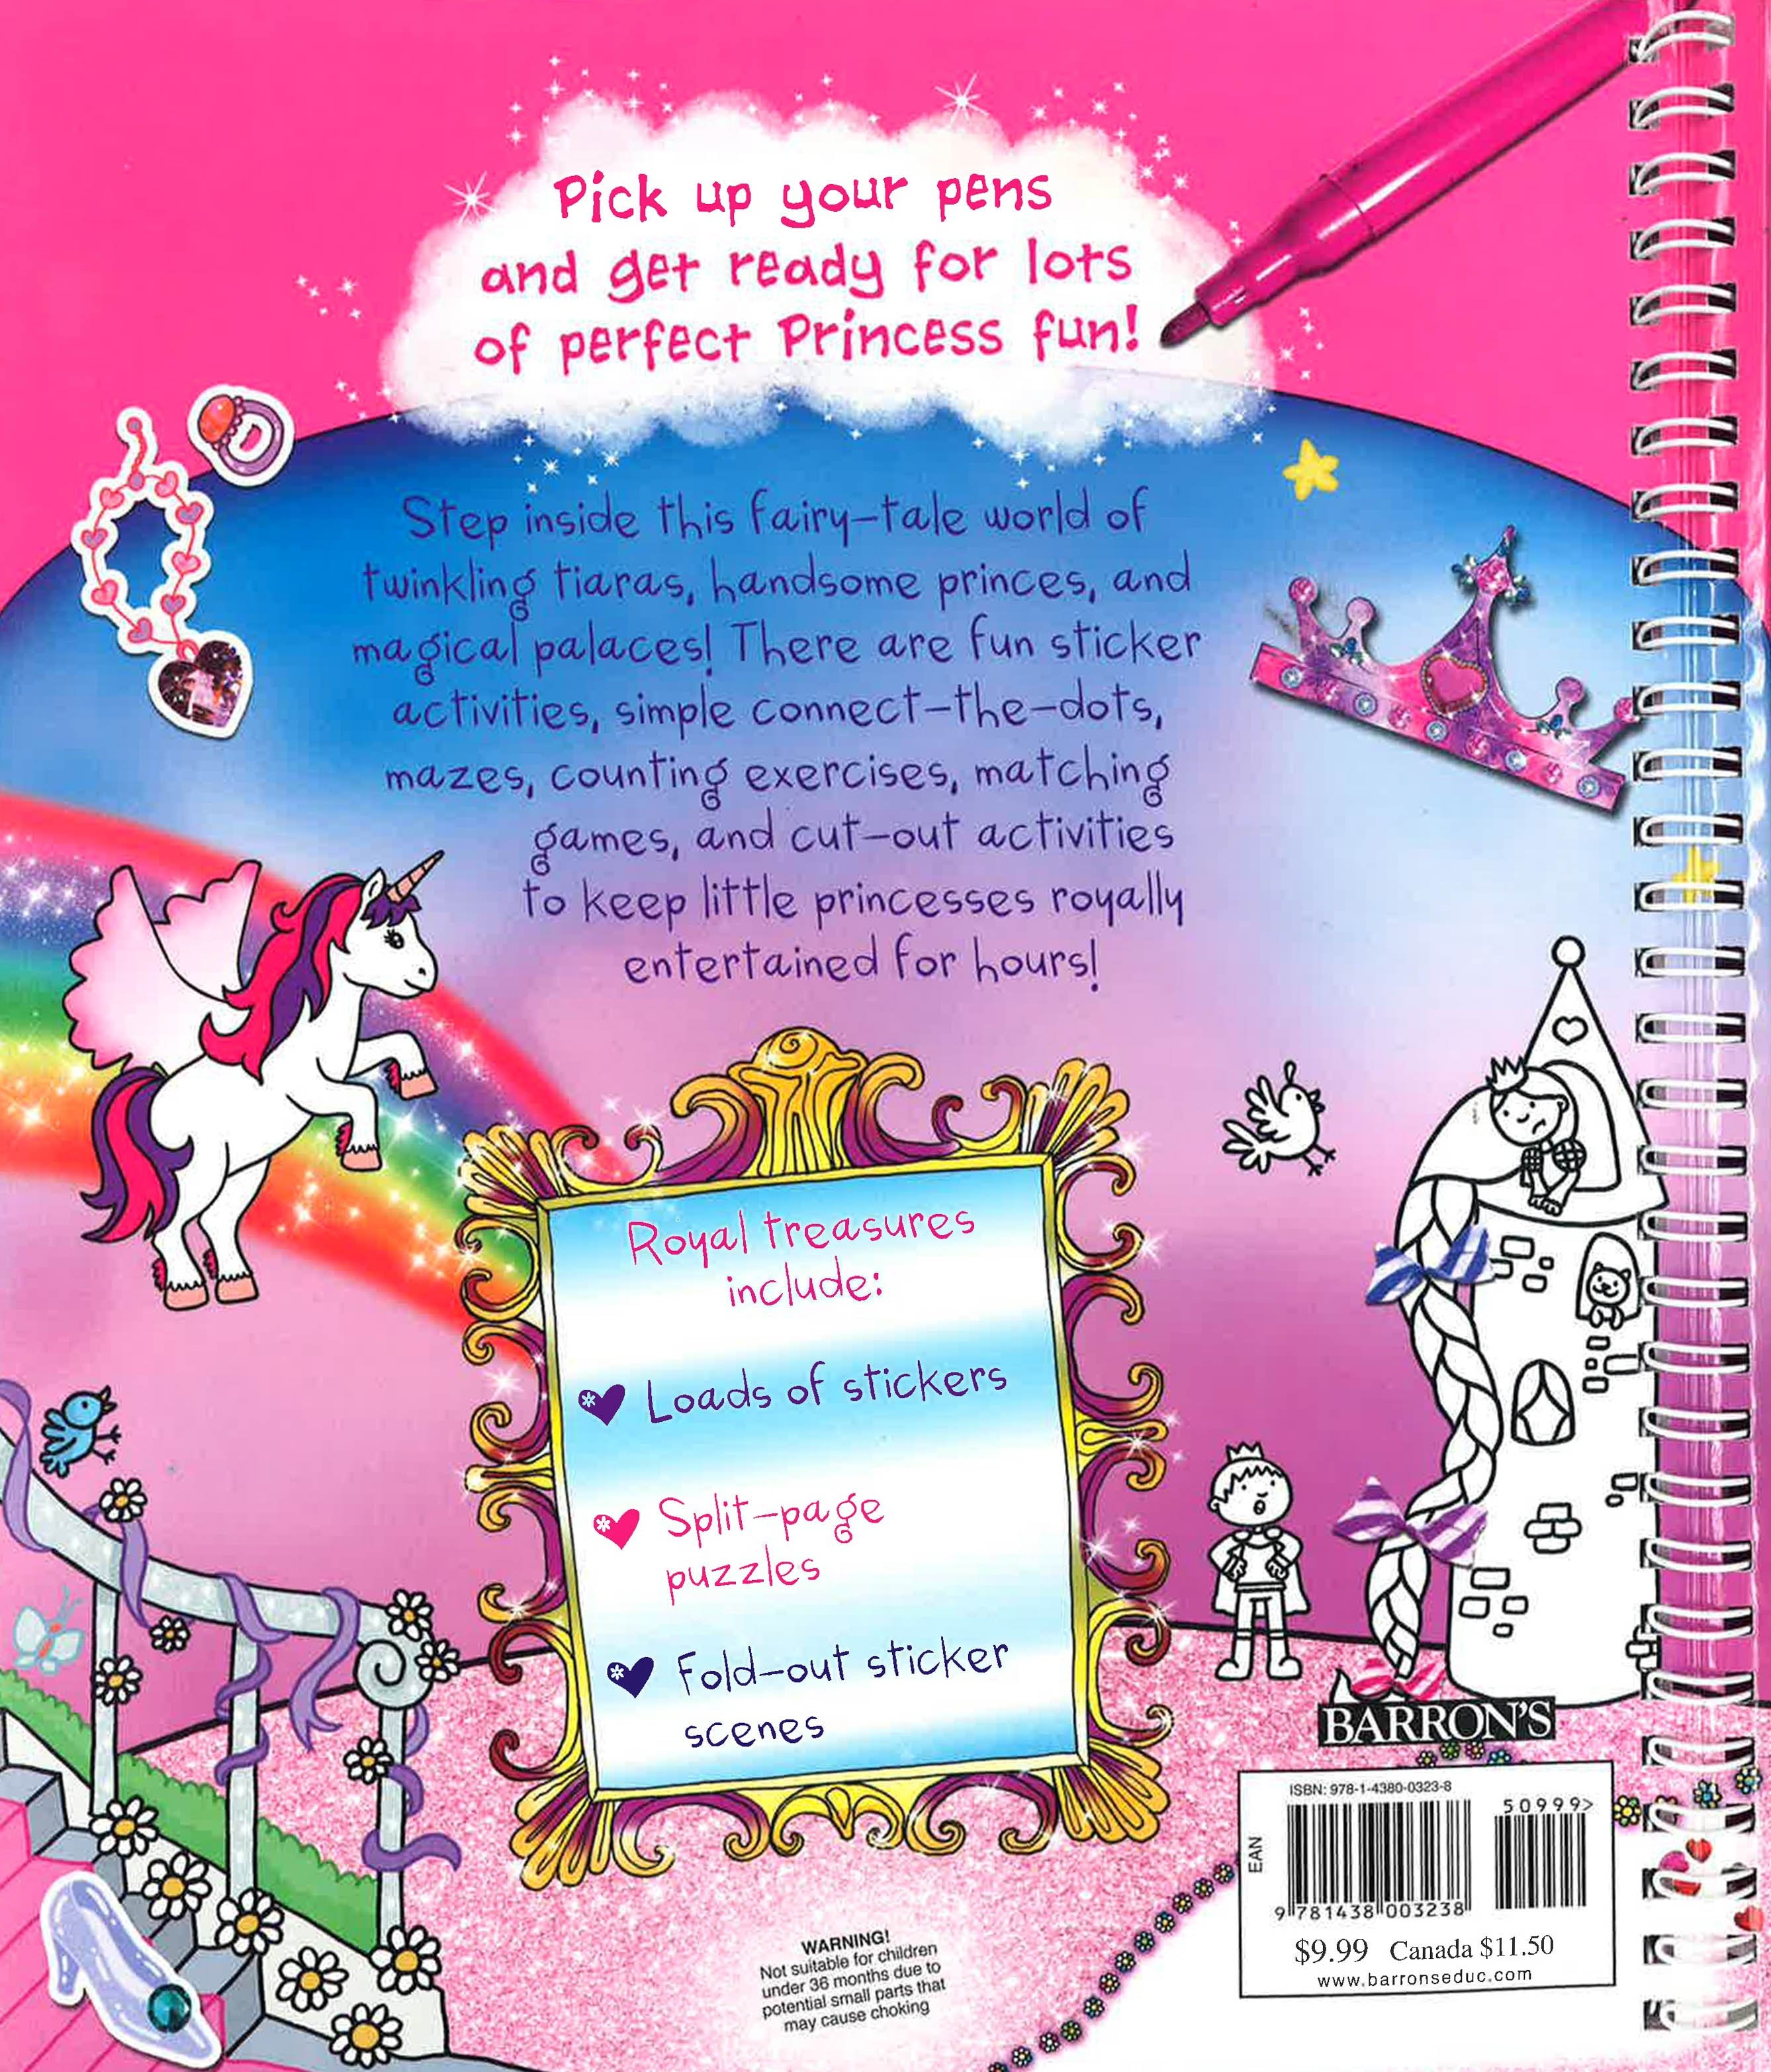 Pick up your pens
and get ready for lots
of perfect Princess fun!
Step inside this fairy-tale world of
twinkling tiaras, handsome princes, and
magical palaces! There are fun sticker
activities, simple connect-the-dots,
mazes, counting exercises, matching
games, and cut-out activities
to keep little princesses royally
entertained for hours!
Royal treasures
include:
Loads of stickers
Split-page
puzzles
Fold-out sticker
scenes
BARRON'S
ISBN: 978-1-4380-0323-8
50999>
EAN
9 781438 003238
$9.99 Canada $11.50
www.barronseduc.com
WARNING!
Not suitable for children
under 36 months due to
potential small parts that
may cause choking